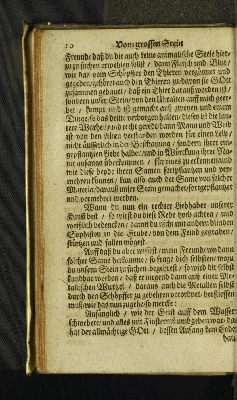 10 Vom grossen Stein
Freund / daß du dir auch keine animalische Seele hier-
zu zu suchen erwehlen solst / dann Fleisch und Blut /
wie das vom Schöpffer den Thieren vergönnet und
gegeben / gehöret auch den Thieren zu / davon sie GOtt
zusammen gebauet / daß ein Thier daraus worden ist /
sondern unser Stein / von den Uralten auff mich geer-
bet / kompt und ist gemacht aus zweyen und einem
Dinge / so das dritte verborgen halten / dieses ist die lau-
tere Warheit / und recht geredt / dann Mann und Weib
ist von den Alten verstanden worden für einen Leib /
nicht äusserlich in der Beschauung / sondern ihrer ein-
gepflantzten Liebe halber / und in Würckung ihrer Na-
tur anfangs überkommen / für eines zu erkennen / und
wie diese beyde ihren Samen fortpflantzen und ver-
mehren können / kan also auch der Same von solcher
Materia / daraus unser Stein gemacht / fortgepflantzet
und vermehret werden.
Wann du nun ein rechter Liebhaber unserer
Kunst bist / so wirst du diese Rede hoch achten / und
weißlich bedencken / damit du nicht mit andern blinden
Sophisten in die Grube / von dem Feind gegraben /
stürtzen und fallen mögest.
Auff daß du aber wissest / mein Freund / wo dann
solcher Same herkomme / so frage dich selbsten / wozu
du unsern Stein zu suchen begehrest / so wird dir selbst
kundbar werden / daß er nirgend dann aus einer Me-
talischen Wurzel / daraus auch die Metallen selbst
durch den Schöpffer zu gebehren verordnet / herfliessen
muß / wie das nun zugehe / so mercke:
Anfänglich / wie der Geist auff dem Wasser
schwebete / und alles mit Finsterniß umbgeben war / da
hat der allmächtige GOtt / dessen Anfang kein Ende